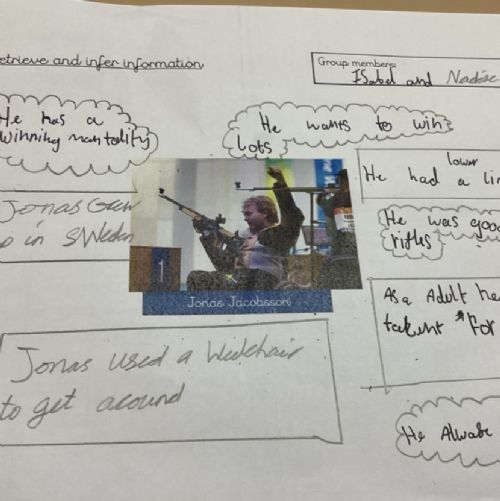 etrieve and infer information
Group members:
ISabel and
He has a
winning mantality
He wants to win
lots
lower
He had a lim
Jonas Grew
p in SWeden
He was good
rifles
1
Jonas Jacobsson
As a Adult he
talent For
Jonas used a Weelchair
to get around
He Alwabe